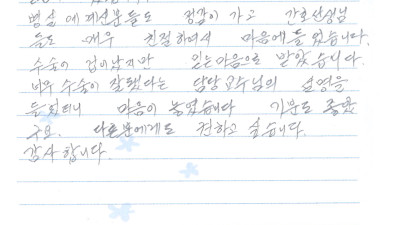 병실에 계신분들도 정감이 가고 간호선생님
들도 매우 친절하여서 마음에들었습니다.
수술이 겁이났지만 믿는마음으로 받았습니다.
매우 수술이 잘됐다는 담당교수님의 설명을
듣었더니 마음이 놓였습니다 기분도 좋았
구요. 다른분에게도 권하고 싶습니다.
감사합니다.